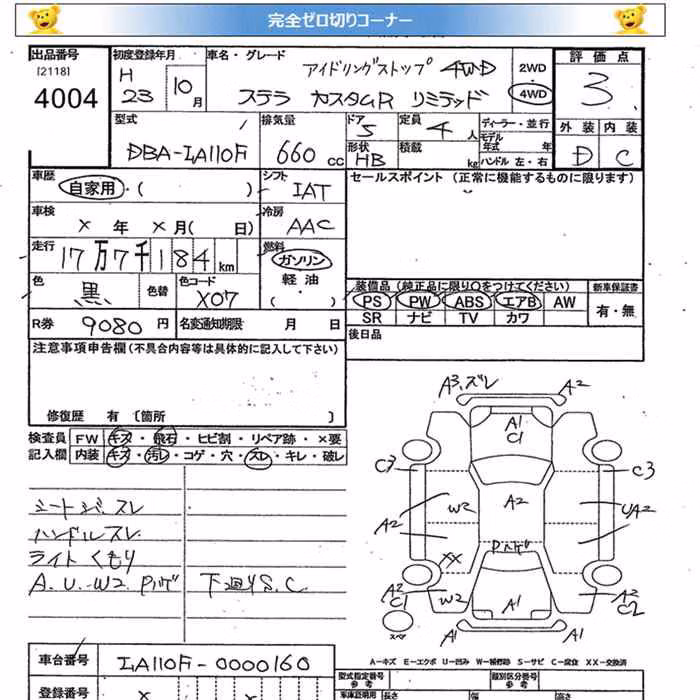 完全ゼロ切りコーナー
出品番号
[2118]
4004
初度登録年月
H 23 10 月
車名・グレード
アイドリングストップ 4WD
ステラ カスタムR リミテッド
2WD
4WD
評価点
3
外装 内装
D C
型式
DBA-LA110F
排気量
660 cc
ドア
5
形状
HB
定員
4 人
積載
kg
ディーラー・並行
モデル
年式 年
ハンドル 左・右
車歴
自家用・( )
シフト
IAT
セールスポイント (正常に機能するものに限ります)
車検
× 年 × 月( 日)
冷房
AAC
走行
17万7千184 km
燃料
ガソリン
軽油
・( )
色
黒
色替
色コード
X07
装備品 (純正品に限り〇をつけてください)
新車保証書
PS PW ABS エアB AW
有・無
SR ナビ TV カワ
R券 9080 円
名変通知期限 月 日
後日品
注意事項申告欄(不具合内容等は具体的に記入して下さい)
修復歴 有 〔箇所 〕
検査員 FW キズ・飛石・ヒビ割・リペア跡・×要
記入欄 内装 キズ・汚レ・コゲ・穴・スレ・キレ・破レ
シートジスレ
ハンドルスレ
ライトくもり
A.U.W2 Pハゲ 下廻りS.C
A3.ズレ
A2
A1
C1
C3
C3
W2
A2
UA2
A2
Pハゲ
XX
A2
C1
W2
A1
A2
C2
スペア
A1
A1
A-キズ E-エクボ U-凹み W-補修跡 S-サビ C-腐食 XX-交換済
車台番号
LA110F-0000160
型式指定番号
参考
類別区分番号
参考
登録番号
× ×
車庫証明用
長さ
幅
高さ